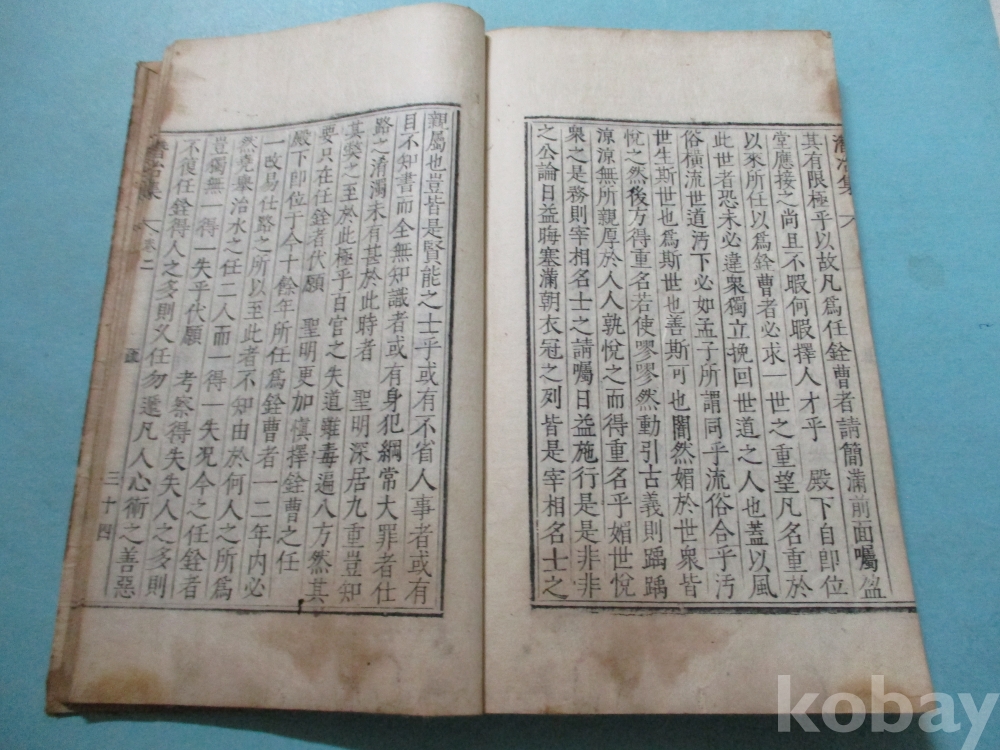 其有限極乎以故凡爲任銓曹者請簡滿前面囑盈
堂應接之尚且不暇何暇擇人才乎 殿下自即位
以來所任以爲銓曹者必求一世之重望凡名重於
此世者恐未必違衆獨立挽回世道之人也蓋以風
俗橫流世道汚下必如孟子所謂同乎流俗合乎汚
世生斯世也爲斯世也善斯可也閹然媚於世衆皆
悅之然後方得重名若使嘐嘐然動引古義則踽踽
涼涼無所親厚於人人孰悅之而得重名乎媚世悅
衆之是務則宰相名士之請囑日益施行是是非非
之公論日益晦塞滿朝衣冠之列皆是宰相名士之
親屬也豈皆是賢能之士乎或有不省人事者或有
目不知書而全無知識者或有身犯綱常大罪者仕
路之淆濁未有甚於此時者 聖明深居九重豈知
其弊之至於此極乎百官之失道雖毒遍八方然其
要只在任銓者代願 聖明更加愼擇銓曹之任
殿下即位于今十餘年所任爲銓曹者一二年內必
一改易仕路之所以至此者不知由於何人之所爲
然堯舜治水之任二人而一得一失况今之任銓者
豈獨無一得一失乎代願 考察得失人之多則
不復任銓得人之多則又任勿遷凡人心術之善惡
集 卷二 三十四
kobay